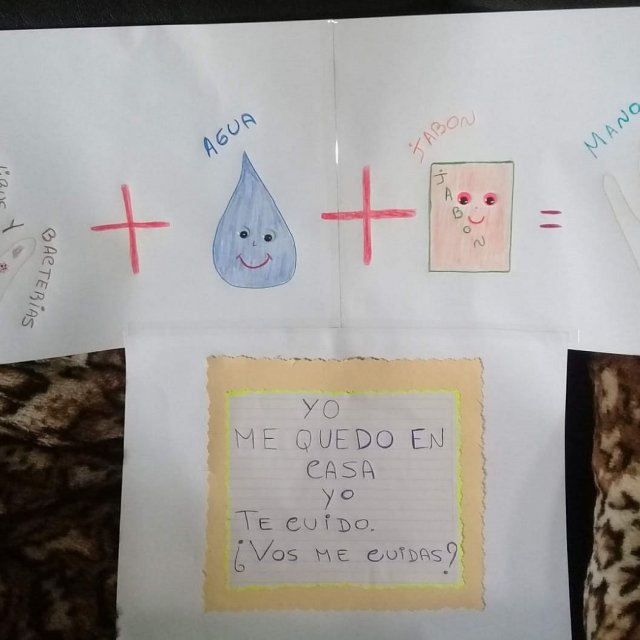 Y
BACTERIAS
+
AGUA
+
JABON
JABON
=
MANO
YO
ME QUEDO EN
CASA
YO
TE CUIDO.
¿VOS ME CUIDAS?